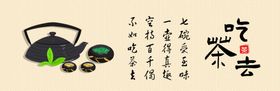 吃茶去
茶
七碗受至味
一壺得真趣
空持百千偈
不如吃茶去